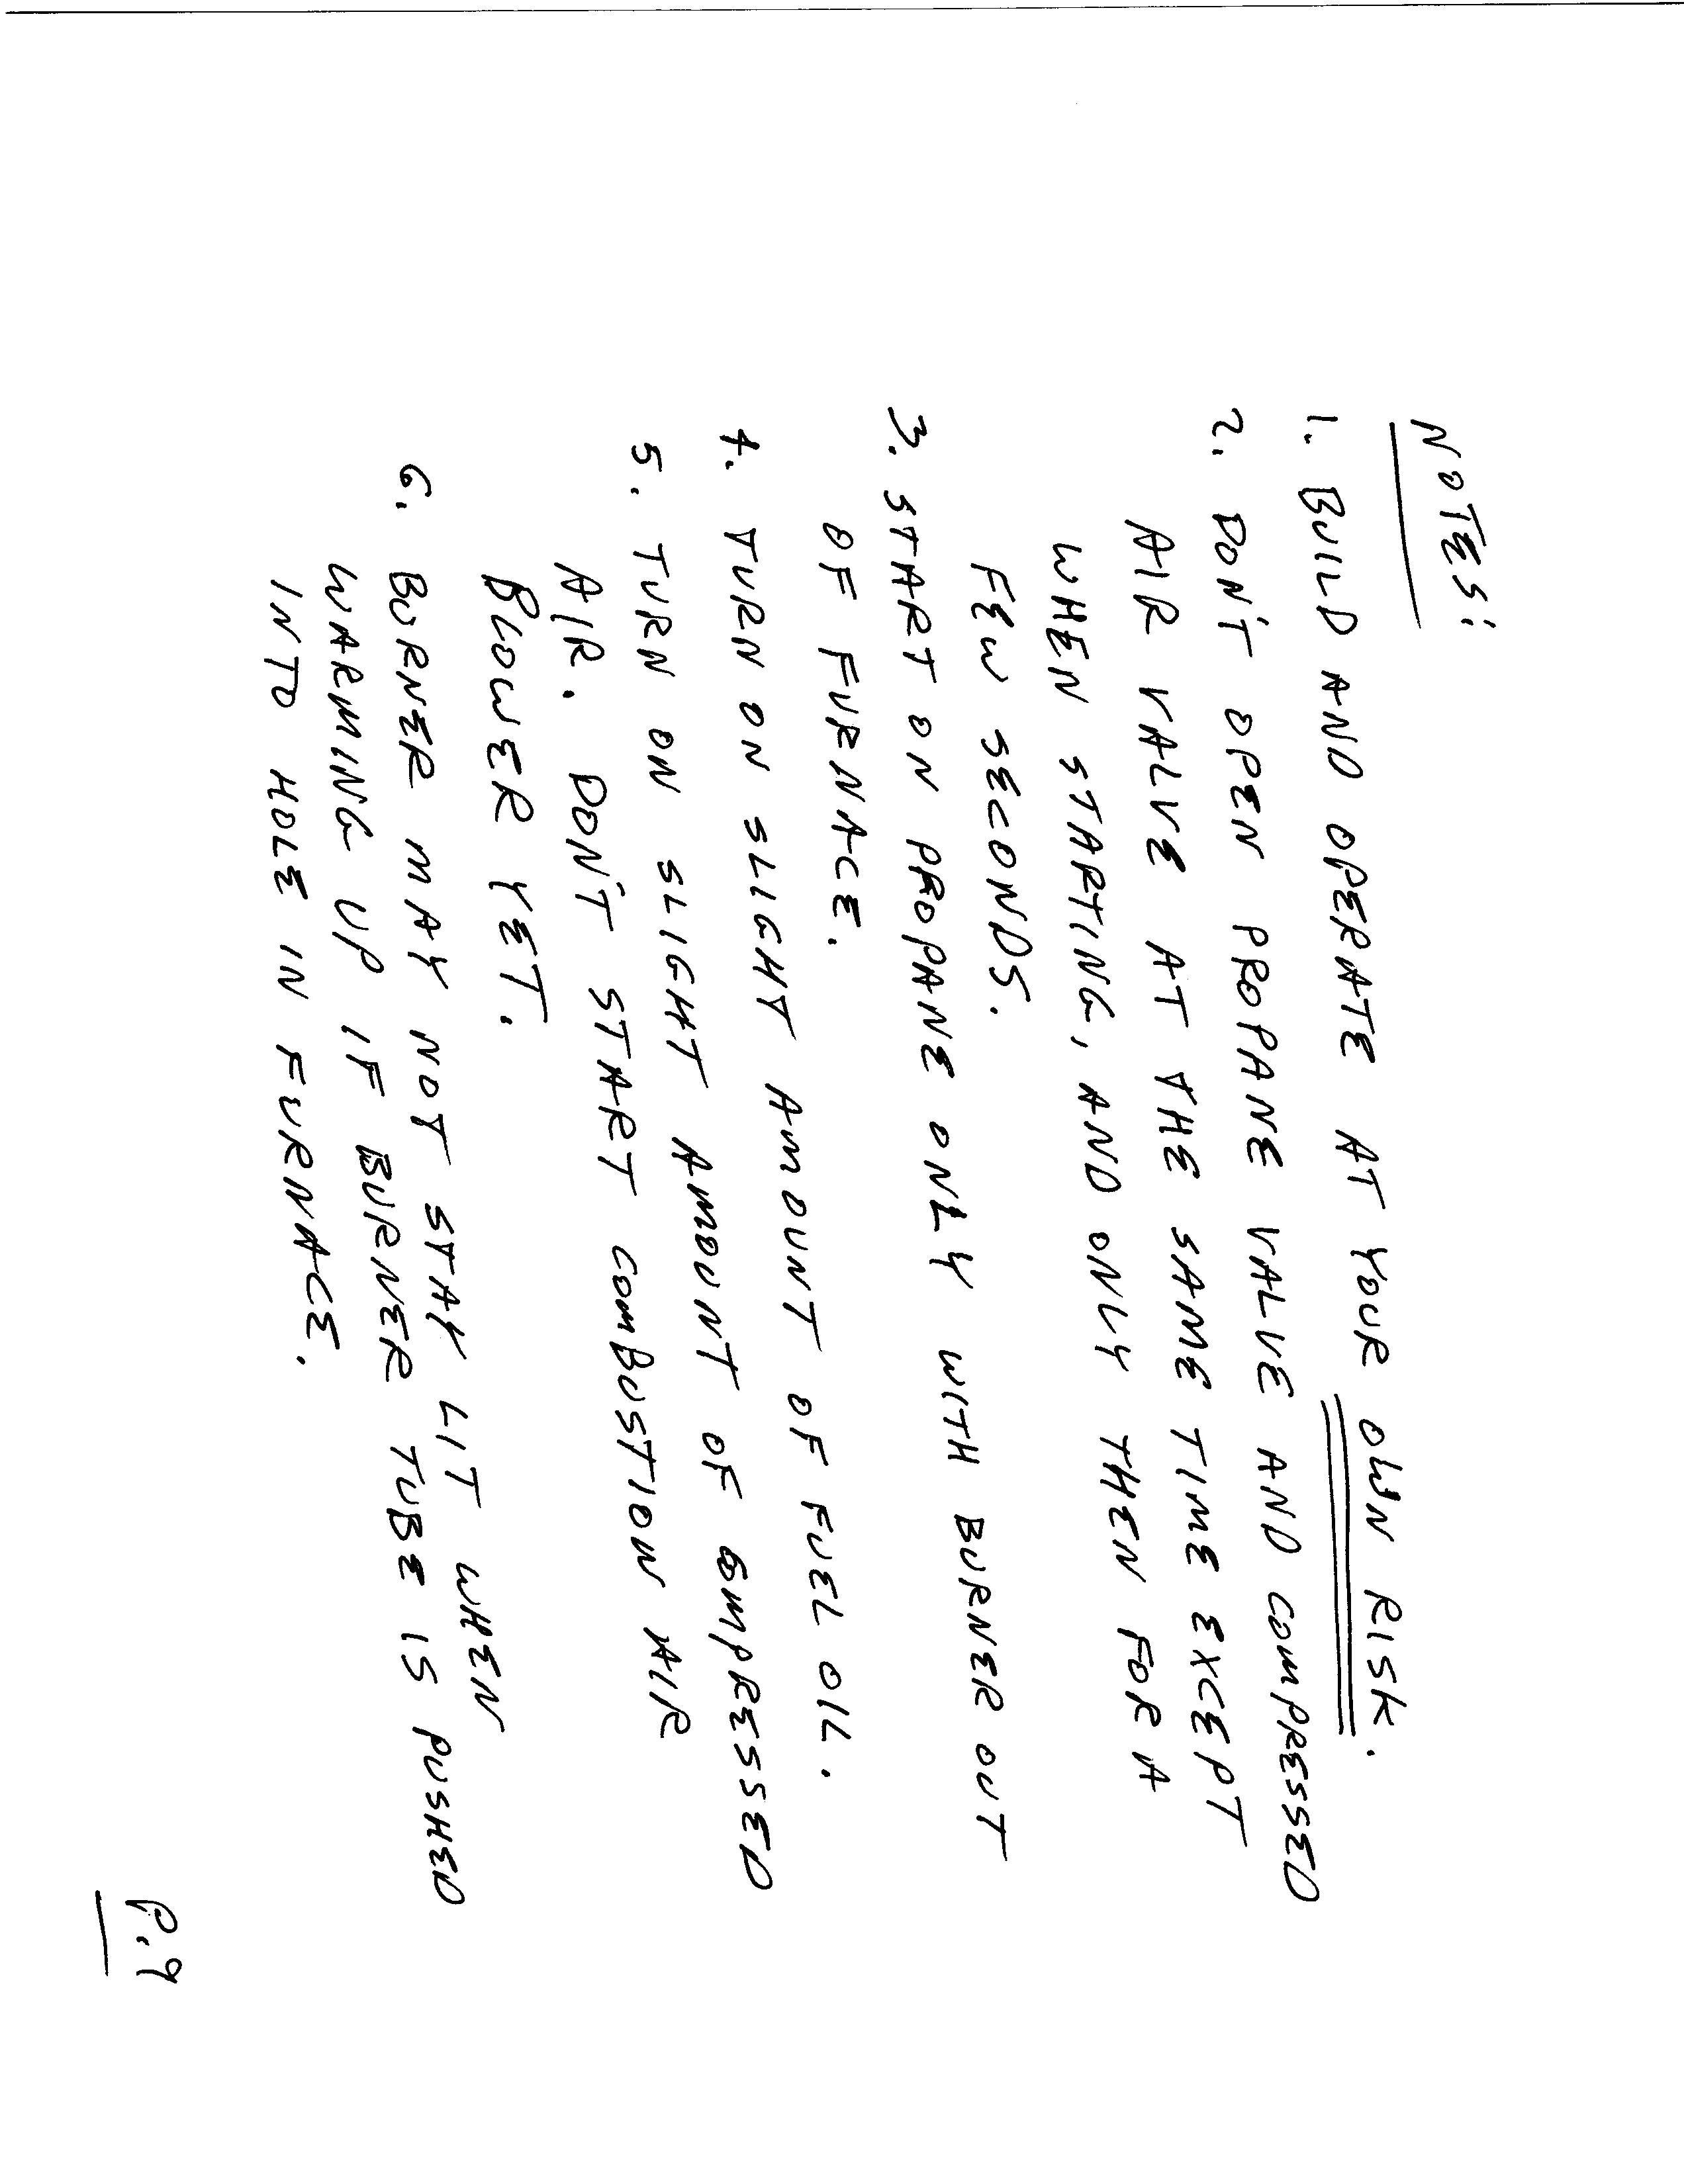 NOTES:
1. BUILD AND OPERATE AT YOUR OWN RISK.
2. DON'T OPEN PROPANE VALVE AND COMPRESSED
AIR VALVE AT THE SAME TIME EXCEPT
WHEN STARTING, AND ONLY THEN FOR A
FEW SECONDS.
3. START ON PROPANE ONLY WITH BURNER OUT
OF FURNACE.
4. TURN ON SLIGHT AMOUNT OF FUEL OIL.
5. TURN ON SLIGHT AMOUNT OF COMPRESSED
AIR. DON'T START COMBUSTION AIR
BLOWER YET.
6. BURNER MAY NOT STAY LIT WHEN
WARMING UP IF BURNER TUBE IS PUSHED
INTO HOLE IN FURNACE.
P.9